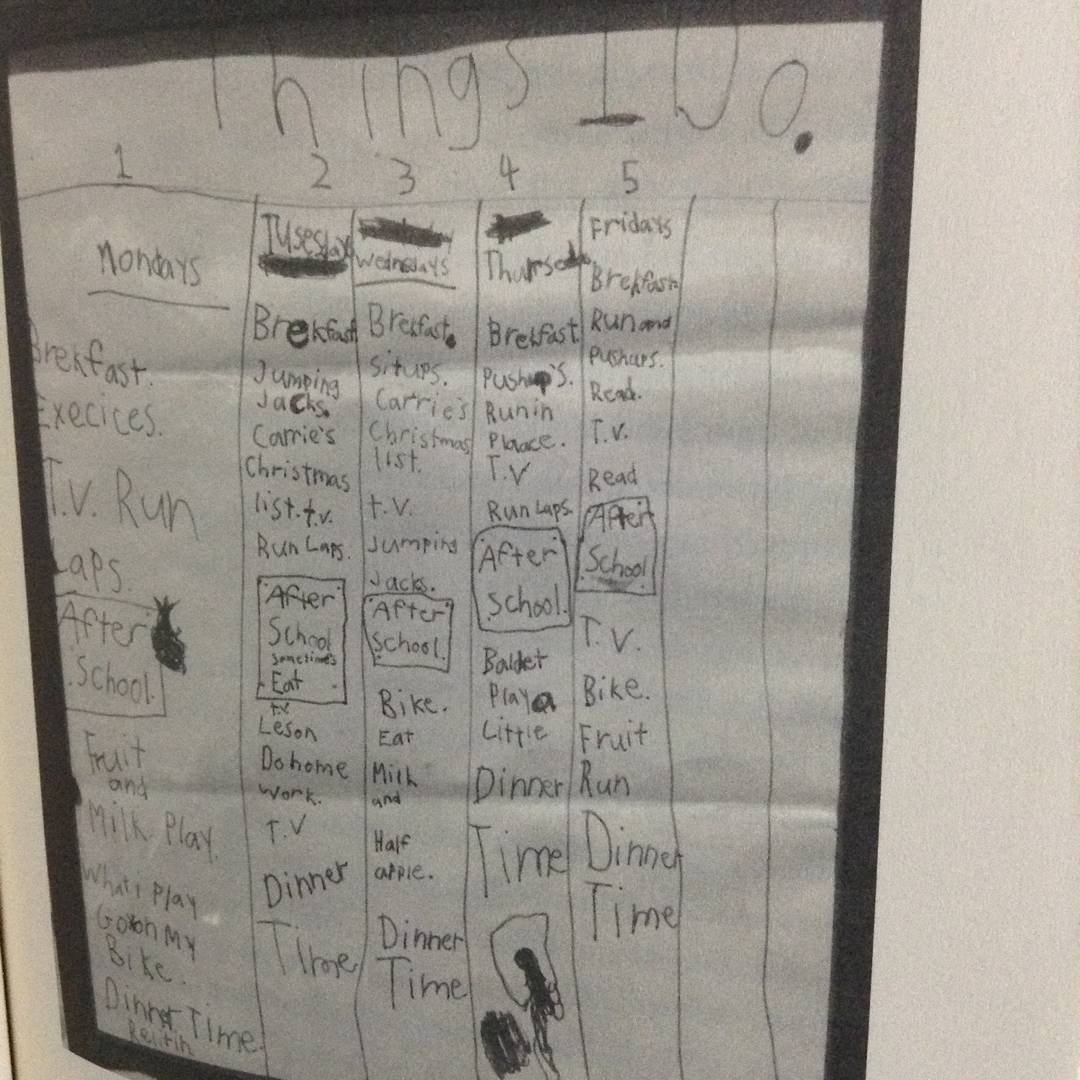 Things I Do.
1
2
3
4
5
Mondays
Brekfast.
Execices.
T.V. Run
Laps.
After
School.
Fruit
and
Milk. Play.
What I Play
Go on My
Bike.
Dinner Time
Tusesday
Brekfast
Jumping
Jacks.
Carrie's
Christmas
list. t.v.
Run Laps.
After
School
sometimes
Eat
t.v
Leson
Do home
work.
T.V
Dinner
Time
Wednesdays
Brekfast.
Situps.
Carrie's
Christmas
list.
t.v.
Jumping
Jacks.
After
School.
Bike.
Eat
Milk
and
Half
apple.
Dinner
Time
Thursday
Brekfast.
Pushup's.
Run in
Plaace.
T.V
Run Laps.
After
School.
Baldet
Play a
Little
Dinner
Time
Fridays
Brekfast
Run and
Pushups.
Read.
T.V.
Read
After
School
T.V.
Bike.
Fruit
Run
Dinner
Time